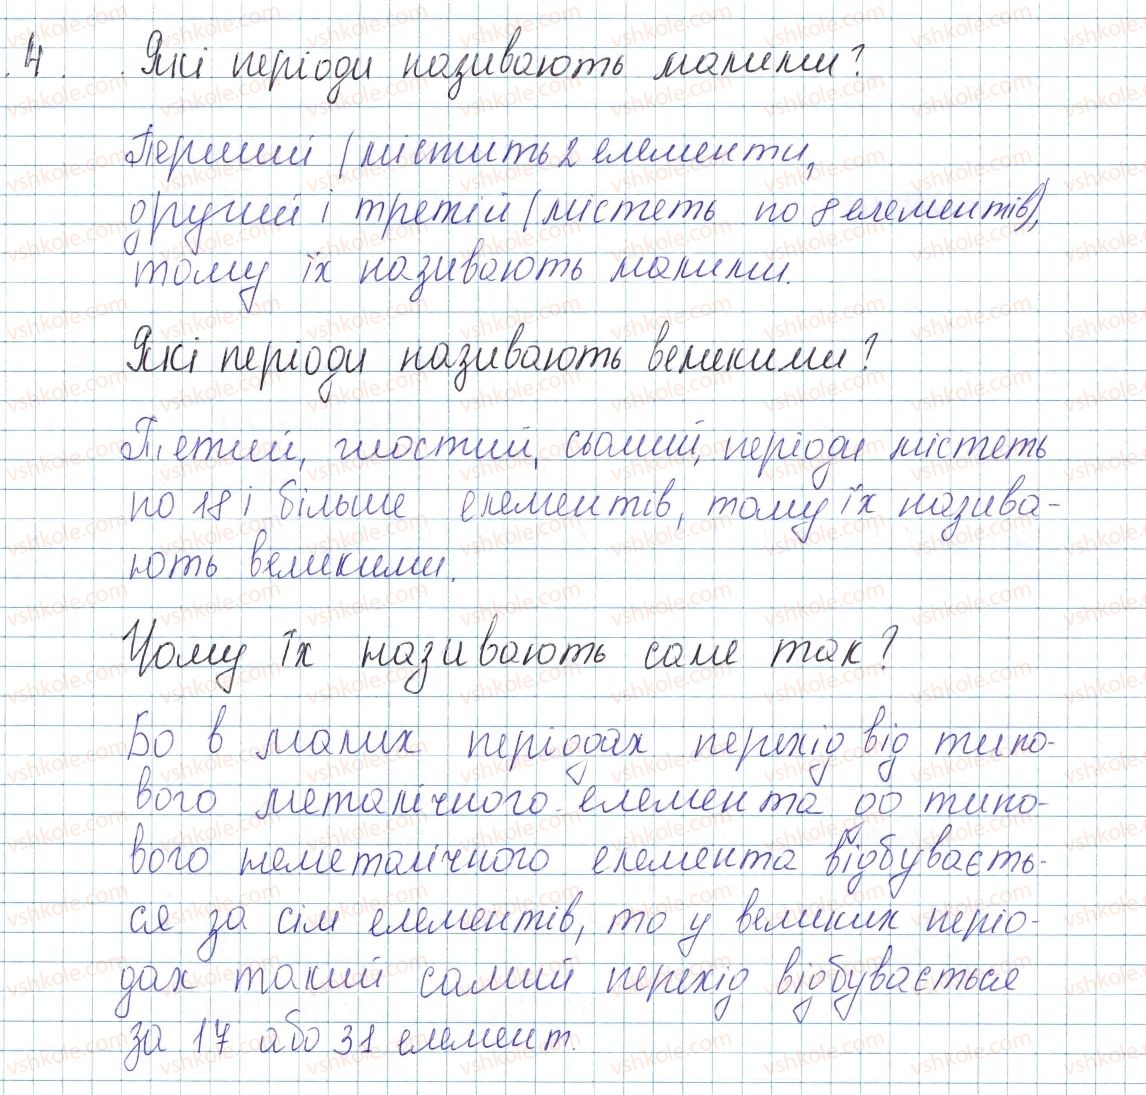 4. Які періоди називають малими?
Перший (містить 2 елементи,
другий і третій (мистеть по 8 елементів),
тому їх називають малими.
Які періоди називають великими?
П'етий, шостий, сьомий, періоди містеть
по 18 і більше елементів, тому їх назива-
ють великими.
Чому їх називають саме так?
Бо в малих періодах перехід від типо-
вого металічного елемента до типо-
вого неметалічного елемента відбуваєть-
ся за сім елементів, то у великих періо-
дах такий самий перехід відбувається
за 17 або 31 елемент.